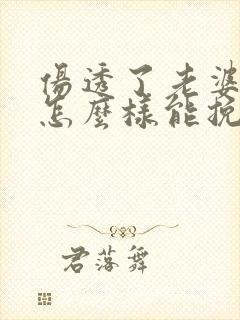 傷透了老婆
怎麼樣能挽
君落舞